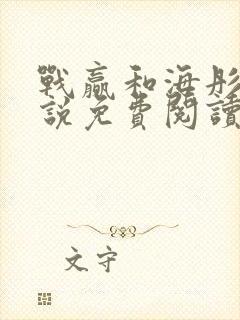 戰贏和海彤
說免費閱讀
文守